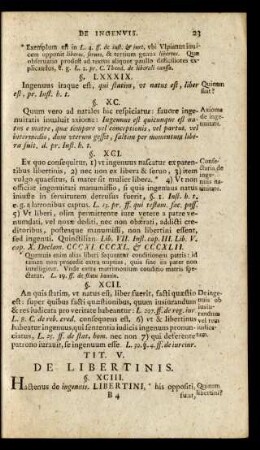 DE INGENVIS. 23
* Exemplum est in L. 4. ff. de iust. & iure, vbi Vlpianus inui-
cem opponit liberos, servos, & tertium genus libertos. Quæ
observatio prodest ad textus aliquot paullo difficiliores ex-
plicandos, e. g. L. 2. pr. C. Theod. de liberali causa.
§. LXXXIX.
Ingenuus itaque est, qui statim, vt natus est, liber
est, pr. Inst. h. t.
Quinam
sint?
§. XC.
Quum vero ad natales hic respiciatur: fauore inge-
nuitatis inualuit axioma: Ingenuus est quicumque est na-
tus e matre, quæ tempore vel conceptionis, vel partus, vel
intermedio, dum vterum gessit, saltim per momentum libe-
ra fuit, d. pr. Inst. h. t.
Axioma
de inge-
nuitate.
§. XCI.
Ex quo consequitur, 1) vt ingenuus nascatur ex paren-
tibus libertinis, 2) nec non ex libera & seruo, 3) item
vulgo quæsitus, si mater sit mulier libera. * 4) Vt non
officiat ingenuitati manumissio, si quis ingenuus natus
iniuste in seruitutem detrusus fuerit, §. 1. Inst. h. t.
e. g. a latronibus captus. L. 13. pr. ff. qui testam. fac. poss.
5) Vt liberi, olim permittente iure vetere a patre ve-
numdati, vel noxæ dediti, nec non obærati, addicti cre-
ditoribus, postesque manumissi, non libertini essent,
sed ingenui. Quinctilian. Lib. VII. Inst. cap. III. Lib. V.
cap. X. Declam. CCCXI. CCCXL. & CCCXLII.
* Quamuis enim alias liberi sequantur conditionem patris: id
tamen non procedit extra nuptias, quia sine iis pater non
intelligitur. Vnde extra matrimonium conditio matris spe-
ctatur. L. 19. ff. de statu homin.
§. XCII.
An quis statim, vt natus est, liber fuerit, facti quæstio
est: super quibus facti quæstionibus, quum iusiurandum
& res iudicata pro veritate habeantur. L. 207. ff. de reg. iur.
L. 8. C. de reb. cred. consequens est, 6) vt & libertinus
habeatur ingenuus, qui sententia iudicis ingenuus pronun-
ciatus, L. 25. ff. de stat. hom. nec non 7) qui deferente
patrono iurauit, se ingenuum esse. L. 30. §. 4. ff. de iureiur.
TIT. V.
DE LIBERTINIS.
§. XCIII.
Hactenus de ingenuis. LIBERTINI, * his oppositi,
B 4 sunt,
Quinam
libertini?